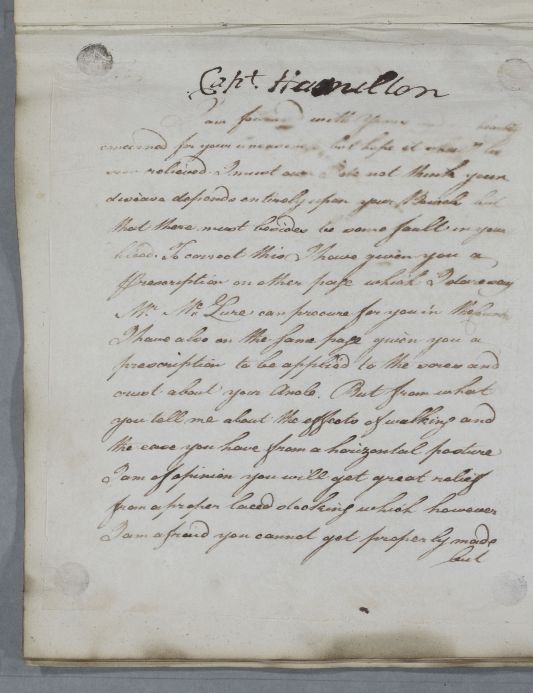 Capt. Hamilton
I am favoured with yours and heartily
concerned for your uneasiness but hope it may be
soon relieved. I must own I do not think your
disease depends entirely upon your Bruise but
that there must besides be some fault in your
blood. To correct this I have given you a
Prescription on other page which I dare say
Mr. Mc.Lure can procure for you in the
I have also on the same page given you a
prescription to be applied to the sores and
crust about your Ancle. But from what
you tell me about the effects of walking and
the ease you have from a horizontal posture
I am of opinion you will get great relief
from a proper laced stocking which however
I am afraid you cannot get properly made
but